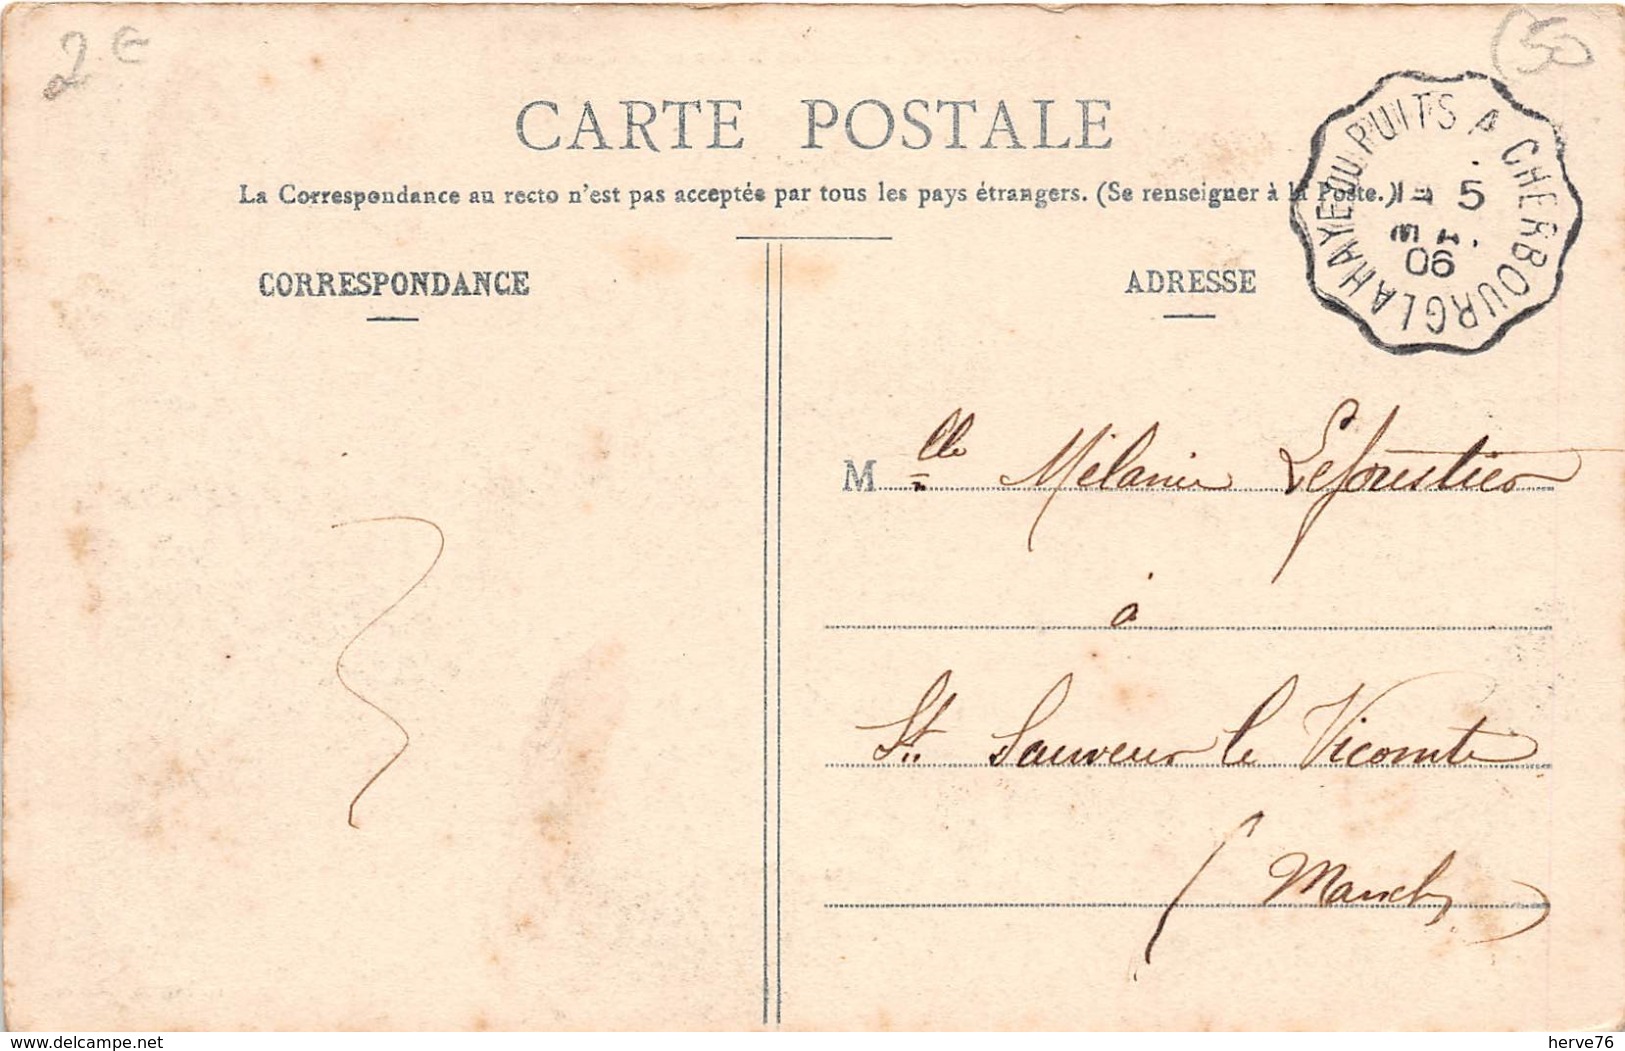 2€
50
CARTE POSTALE
La Correspondance au recto n'est pas acceptée par tous les pays étrangers. (Se renseigner à la Poste.)
LA HAYE DU PUITS A CHERBOURG
5
06
CORRESPONDANCE
ADRESSE
Mlle Mélanie Lefoustier
à
St. Sauveur le Vicomte
(Manche)
www.delcampe.net
herve76